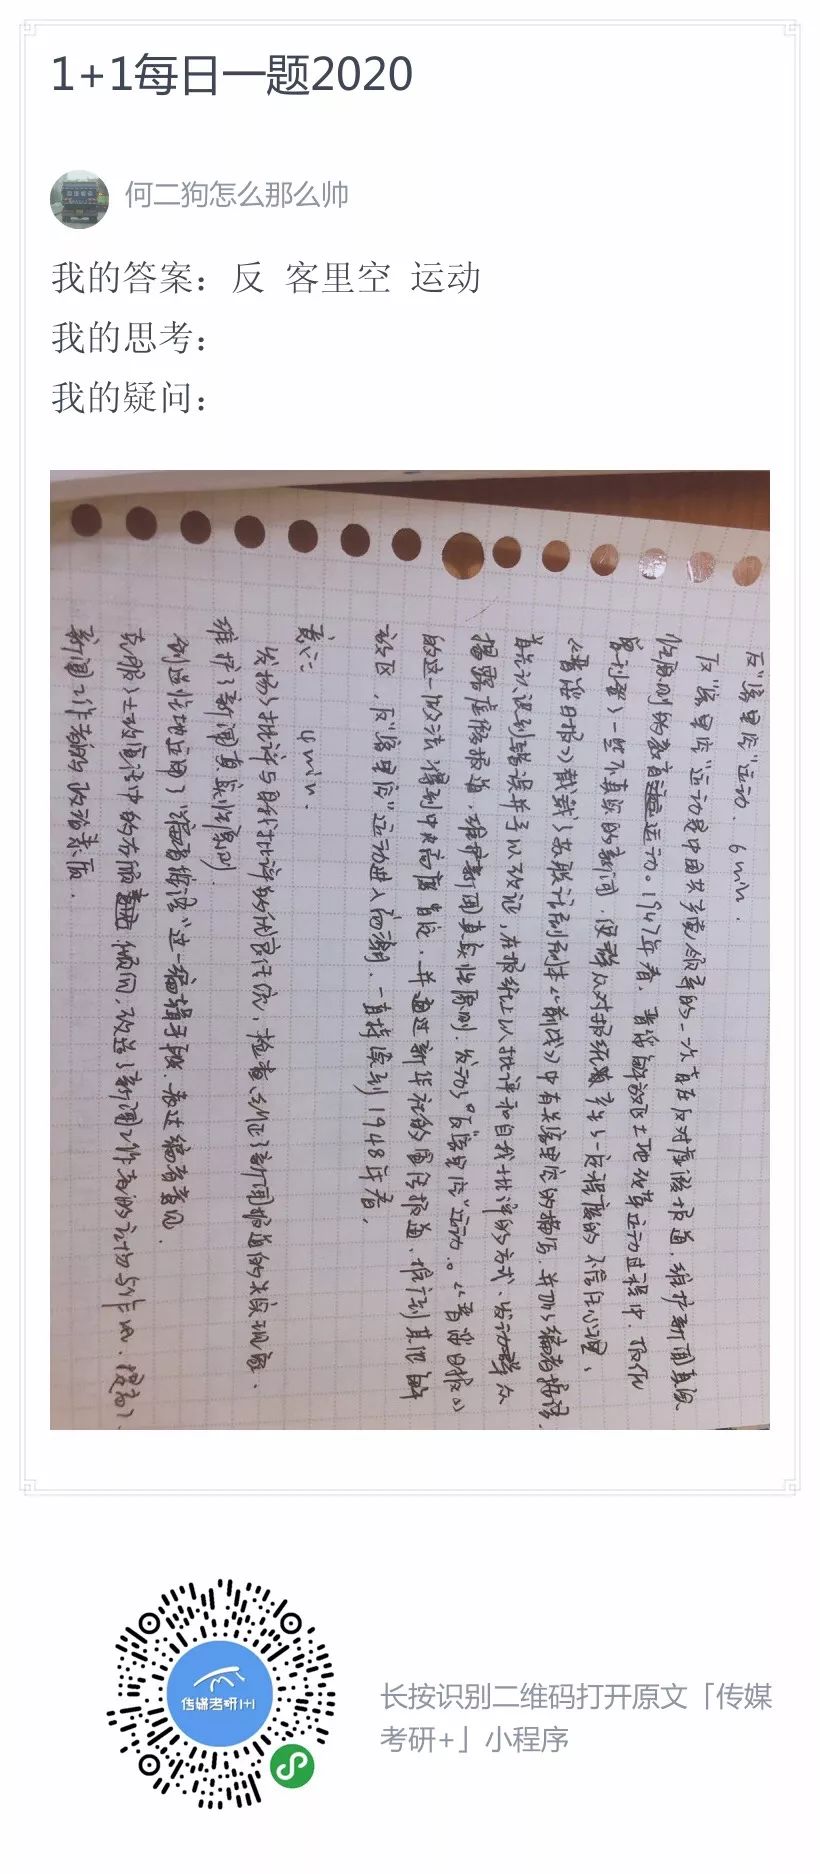 1+1每日一题2020
何二狗怎么那么帅
我的答案：反 客里空 运动
我的思考：
我的疑问：
反“客里空”运动. 6min.
反“客里空”运动是中国共产党领导的一次旨在反对虚假报道，维护新闻真实
性原则的教育运动。1947年春，晋绥解放区土地改革运动过程中，
客刊者一些不真实的新闻，使群众对报纸产生了一定程度的不信任心理，
《晋绥日报》载了苏联话剧剧本《前线》中有关客里空的描写，并加了编者按语，
其认识到错误并予以改正，在报纸上以批评和自我批评的方式，发动群众
揭露虚假报道，维护新闻真实性原则，发动了“反客里空”运动。《晋绥日报》
的这一做法得到中央高度肯定，并通过新华社的宣传报道，推行到其他解
放区，反“客里空”运动进入高潮，一直持续到1948年春，
意义： 4min.
发扬了批评与自我批评的优良作风，检查纠正了新闻报道的失实现象.
维护了新闻真实性原则.
创造性地运用了“编者按语”这一编辑手段，表达编者意见.
克服了土改宣传中的右倾 倾向，改进了新闻工作者的 作风，提高了
新闻工作者的政治素质.
传媒考研1+1
长按识别二维码打开原文「传媒
考研+」小程序